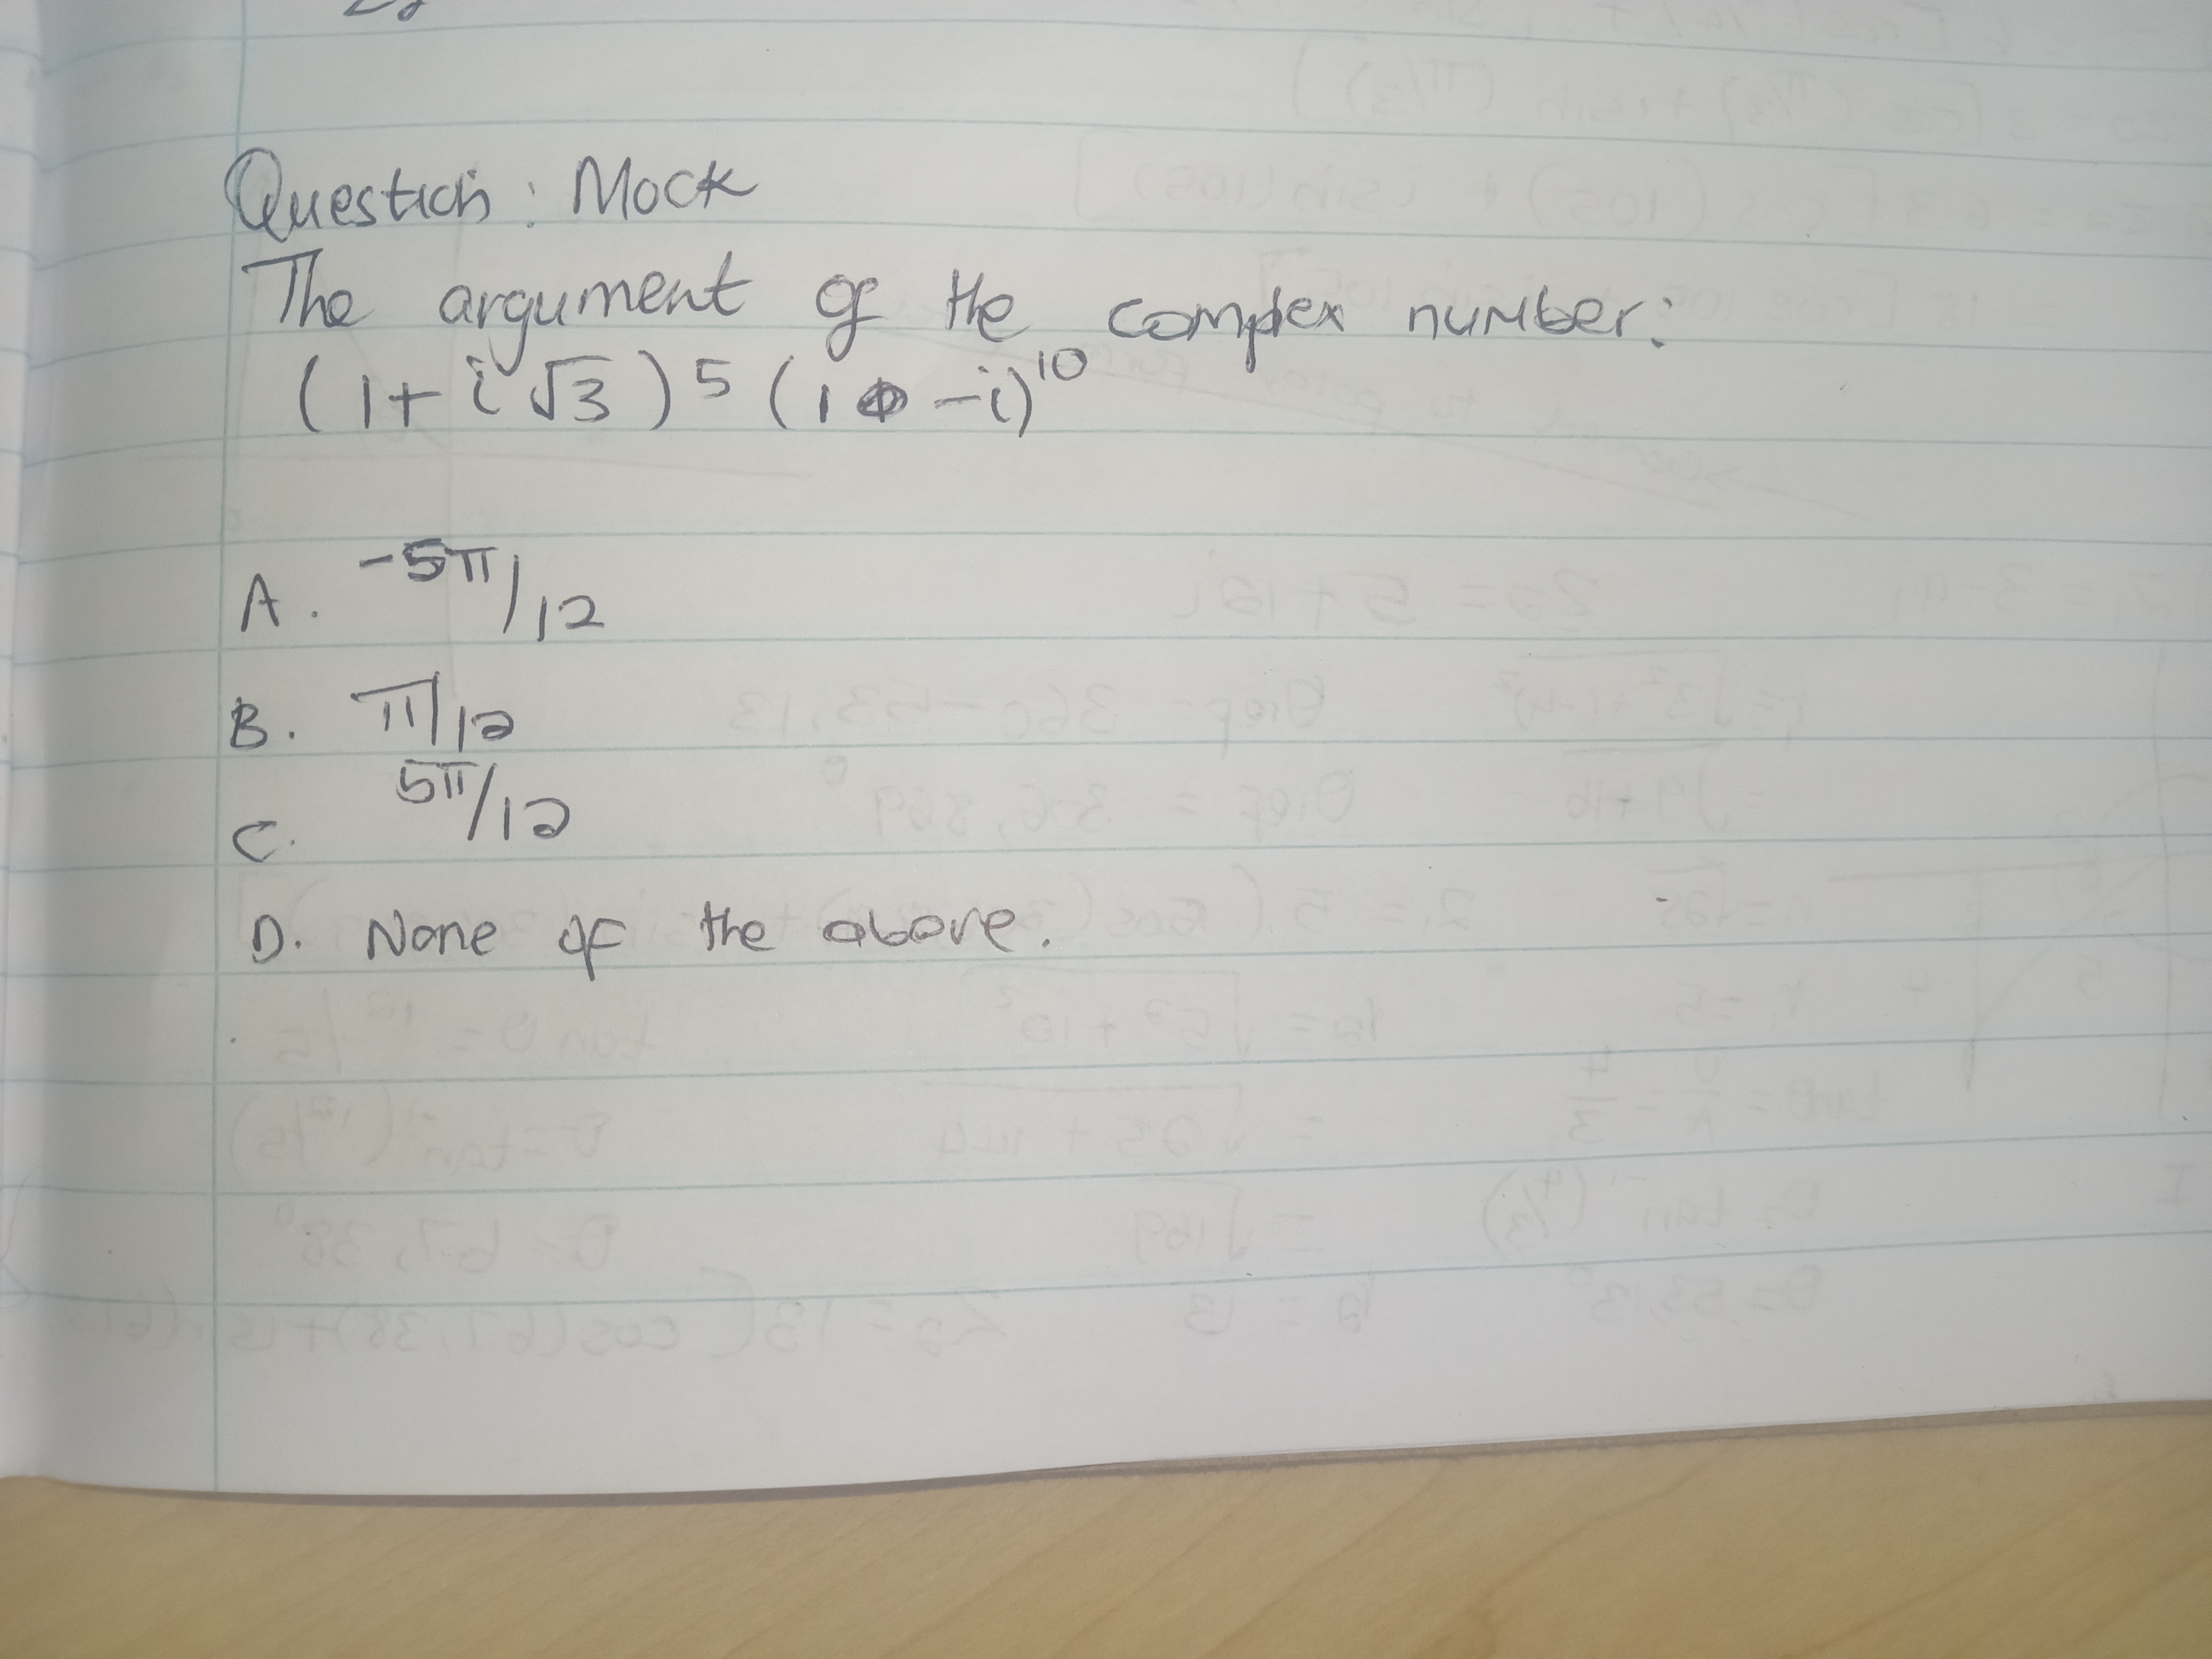 Question: Mock
The argument of the complex number:
(1 + i√3)⁵ (1 - i)¹⁰
A. -5π/12
B. π/12
C. 5π/12
D. None of the above.